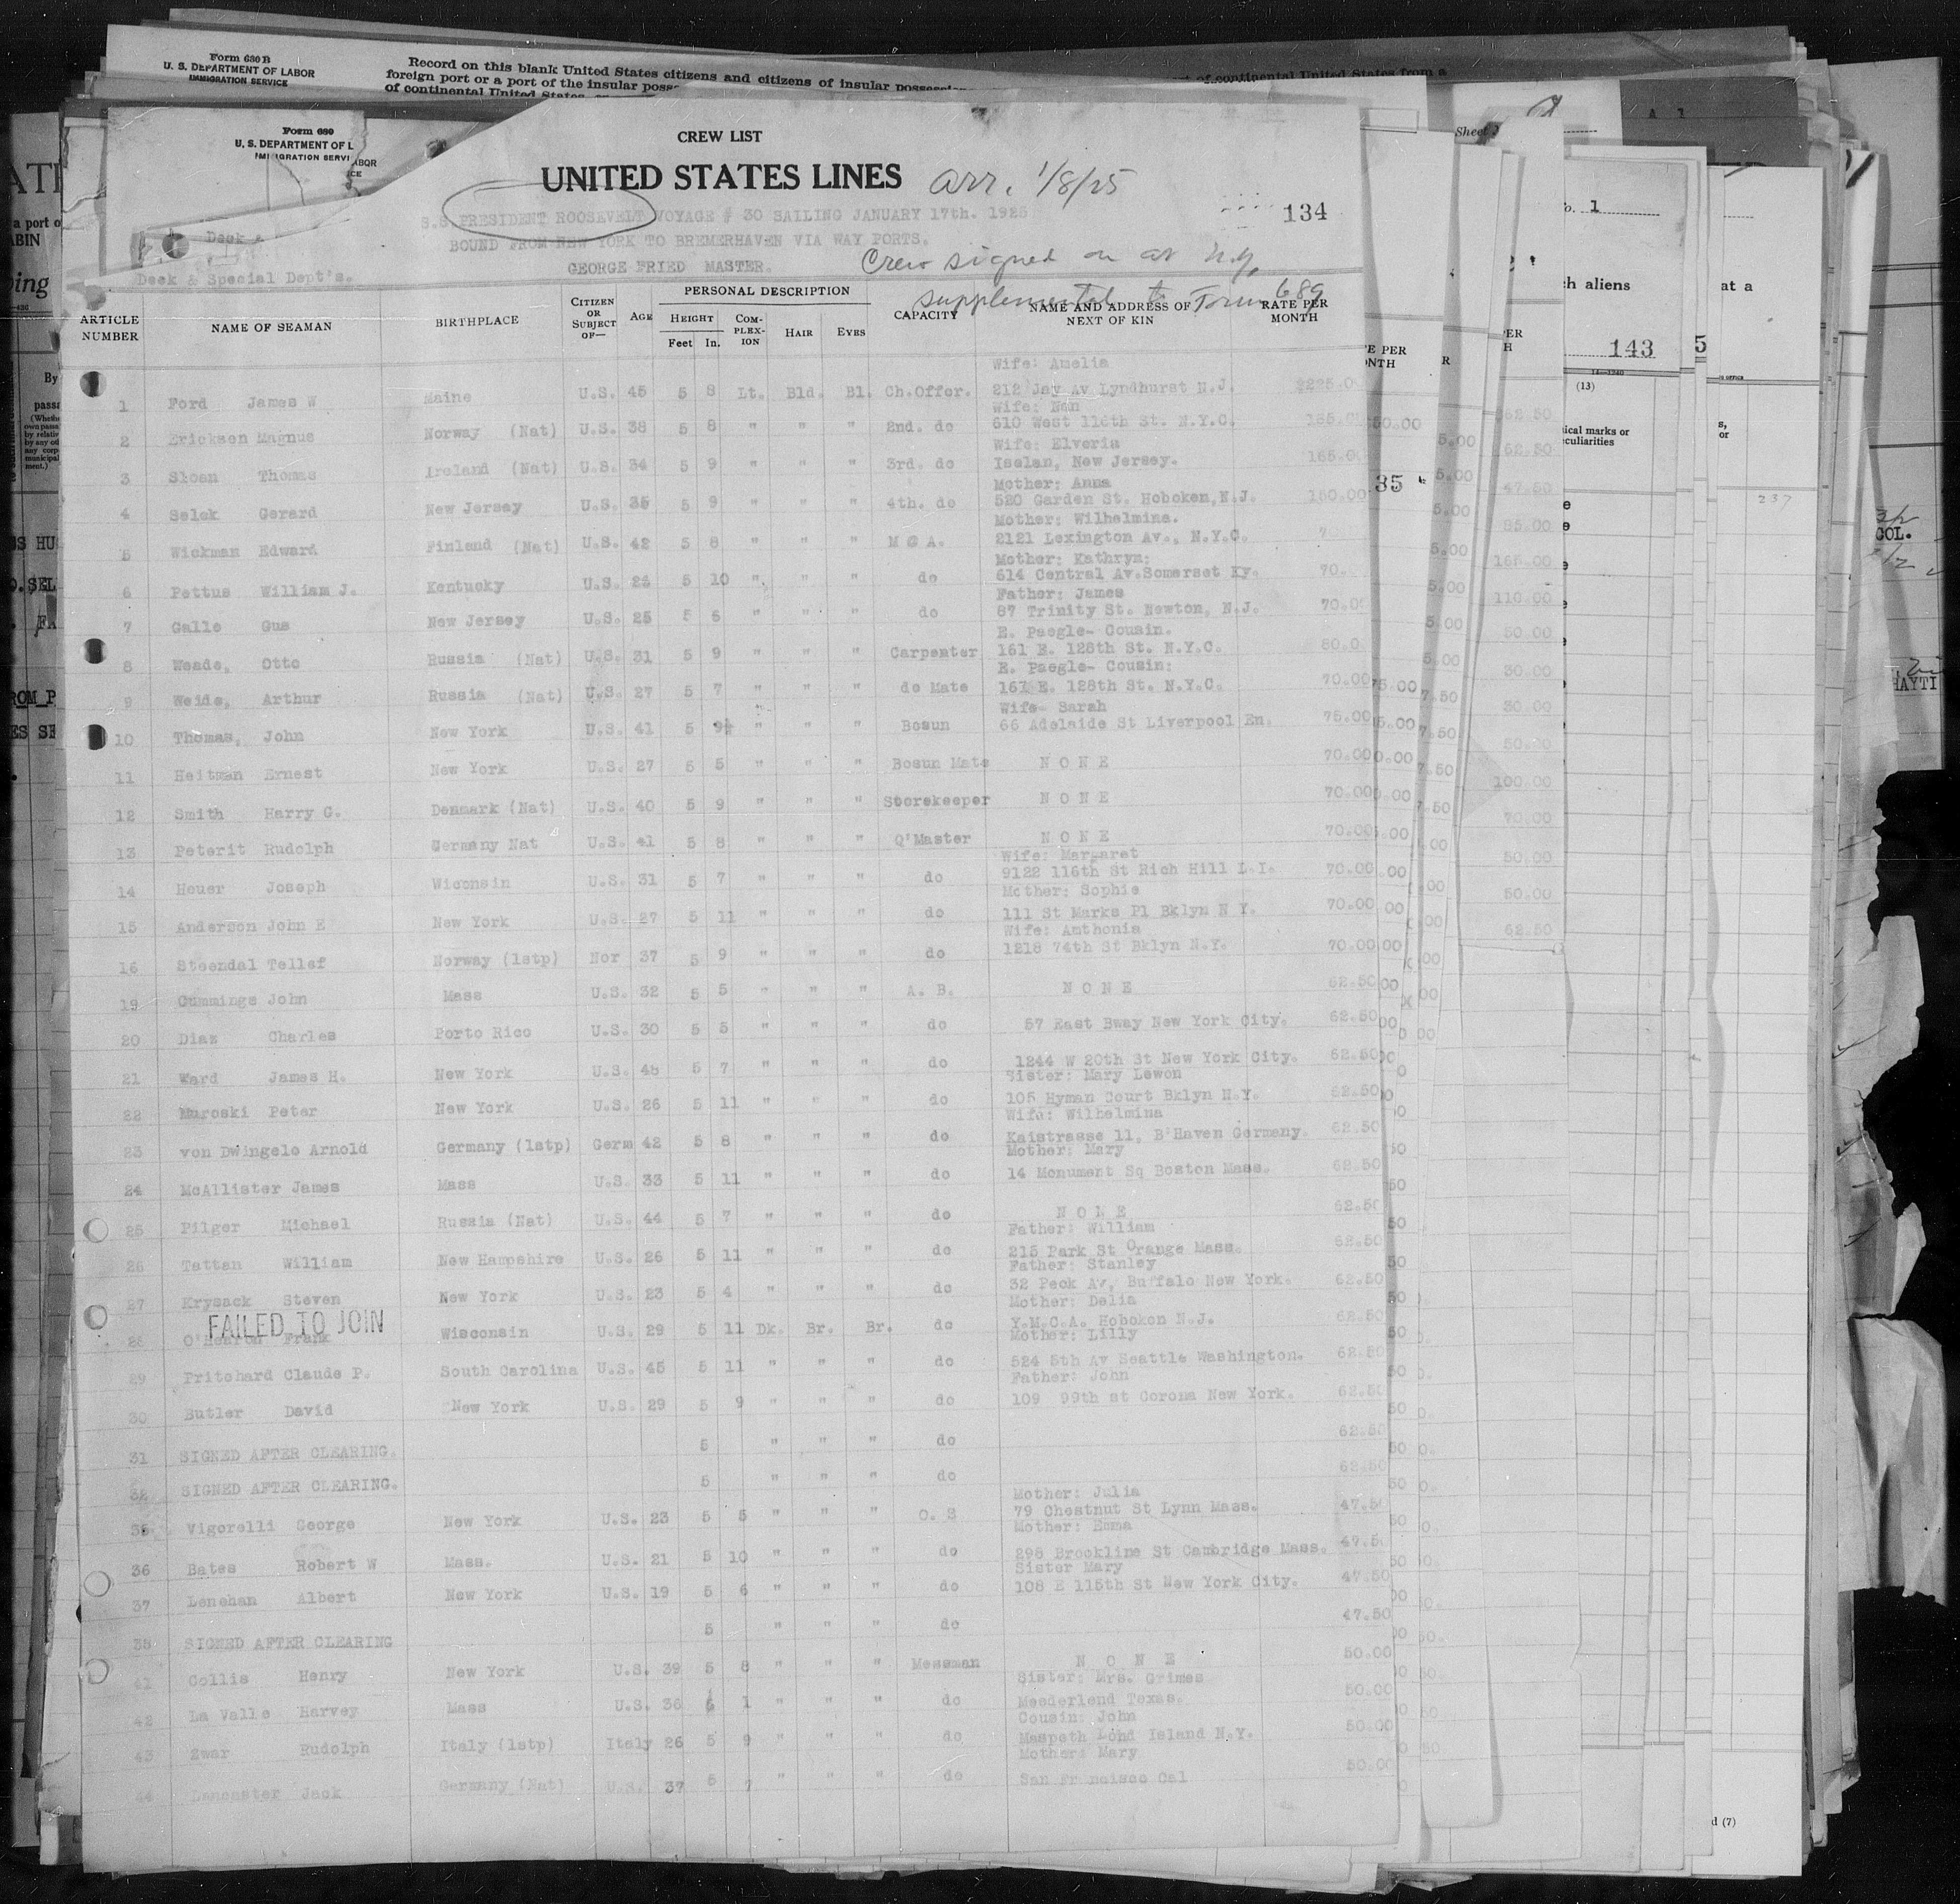 Form 630 B
U. S. DEPARTMENT OF LABOR
IMMIGRATION SERVICE
Record on this blank United States citizens and citizens of insular
foreign port or a port of the insular
of continental United States
of continental United States from a
Form 680
U. S. DEPARTMENT OF L
CREW LIST
UNITED STATES LINES arr. 1/8/25
S.S. PRESIDENT ROOSEVELT VOYAGE # 30 SAILING JANUARY 17th. 1925
134
BOUND FROM NEW YORK TO BREMERHAVEN VIA WAY PORTS.
GEORGE FRIED MASTER.
Crew signed on at N.Y.
supplemental to Form 689
Deck &
Deck & Special Dept's.
ARTICLE NUMBER NAME OF SEAMAN BIRTHPLACE CITIZEN OR SUBJECT OF— AGE PERSONAL DESCRIPTION HEIGHT Feet In. COM-PLEX-ION HAIR EYES CAPACITY NAME AND ADDRESS OF NEXT OF KIN RATE PER MONTH
Wife: Amelia
1 Ford James W Maine U.S. 45 5 8 Lt. Bld. Bl. Ch.Offcr. 212 Jay Av Lyndhurst N.J.
Wife: Nan
2 Ericksen Magnus Norway (Nat) U.S. 38 5 8 " " " 2nd. do 610 West 116th St. N.Y.C. 185.00
Wife: Elveria
3 Sloan Thomas Ireland (Nat) U.S. 34 5 9 " " " 3rd. do Iselan, New Jersey. 165.00
Mother: Anna
4 Selek Gerard New Jersey U.S. 35 5 9 " " " 4th. do 520 Garden St. Hoboken, N.J. 150.00
Mother: Wilhelmina.
5 Wickman Edward Finland (Nat) U.S. 42 5 8 " " " M G A. 2121 Lexington Av., N.Y.C.
Mother: Kathryn:
6 Pettus William J. Kentucky U.S. 24 5 10 " " " do 614 Central Av.Somerset Ky. 70.
Father: James
7 Galle Gus New Jersey U.S. 25 5 6 " " " do 87 Trinity St. Newton, N.J. 70.00
E. Paegle- Cousin.
8 Weade, Otto Russia (Nat) U.S. 31 5 9 " " " Carpenter 161 E. 128th St. N.Y.C. 80.0
E. Paegle- Cousin:
9 Weide, Arthur Russia (Nat) U.S. 27 5 7 " " " do Mate 161 E. 128th St. N.Y.C. 70.00
Wife- Sarah
10 Thomas, John New York U.S. 41 5 9½ " " " Bosun 66 Adelaide St Liverpool En. 75.00
11 Heitman Ernest New York U.S. 27 5 5 " " " Bosun Mate N O N E 70.00
12 Smith Harry G. Denmark (Nat) U.S. 40 5 9 " " " Storekeeper N O N E 70.00
13 Peterit Rudolph Germany Nat U.S. 41 5 8 " " " Q'Master N O N E 70.00
Wife: Margaret
14 Heuer Joseph Wiconsin U.S. 31 5 7 " " " do 9122 116th St Rich Hill L.I. 70.00
Mother: Sophie
15 Anderson John E New York U.S. 27 5 11 " " " do 111 St Marks Pl Bklyn N Y. 70.00
Wife: Anthonia
16 Steendal Tellef Norway (1stp) Nor 37 5 9 " " " do 1218 74th St Bklyn N.Y. 70.00
19 Cummings John Mass U.S. 32 5 5 " " " A. B. N O N E 62.50
20 Diaz Charles Porto Rico U.S. 30 5 5 " " " do 57 East Bway New York City. 62.50
21 Ward James H. New York U.S. 48 5 7 " " " do 1244 W 20th St New York City. 62.50
Sister: Mary Lewon
22 Muroski Peter New York U.S. 26 5 11 " " " do 105 Hyman Court Bklyn N.Y. 62.50
Wife: Wilhelmina
23 von Dwingelo Arnold Germany (1stp) Germ 42 5 8 " " " do Kaistrasse 11, B'Haven Germany. 62.50
Mother: Mary
24 McAllister James Mass U.S. 33 5 11 " " " do 14 Monument Sq Boston Mass. 62.50
25 Pilger Michael Russia (Nat) U.S. 44 5 7 " " " do N O N E 62.50
Father: William
26 Tattan William New Hampshire U.S. 26 5 11 " " " do 215 Park St Orange Mass. 62.50
Father: Stanley
27 Krysack Steven New York U.S. 23 5 4 " " " do 32 Peck Av, Buffalo New York. 62.50
Mother: Delia
FAILED TO JOIN
28 O'Hearon Frank Wisconsin U.S. 29 5 11 Dk. Br. Br. do Y.M.C.A. Hoboken N.J. 62.50
Mother: Lilly
29 Pritchard Claude P. South Carolina U.S. 45 5 11 " " " do 524 5th Av Seattle Washington. 62.50
Father: John
30 Butler David New York U.S. 29 5 9 " " " do 109 99th st Corona New York. 62.50
31 SIGNED AFTER CLEARING. 5 " " " do 62.50
32 SIGNED AFTER CLEARING. 5 " " " do 62.50
Mother: Julia
35 Vigorelli George New York U.S. 23 5 5 " " " O. S 79 Chestnut St Lynn Mass. 47.50
Mother: Emma
36 Bates Robert W Mass. U.S. 21 5 10 " " " do 298 Brookline St Cambridge Mass. 47.50
Sister Mary
37 Lenehan Albert New York U.S. 19 5 6 " " " do 108 E 115th St New York City. 47.50
38 SIGNED AFTER CLEARING 5 " " " do 47.50
41 Collis Henry New York U.S. 39 5 8 " " " Messman N O N E 50.00
Sister: Mrs. Grimes
42 La Valle Harvey Mass U.S. 36 6 1 " " " do Meederlend Texas. 50.00
Cousin: John
43 Zwar Rudolph Italy (1stp) Italy 26 5 9 " " " do Maspeth Lond Island N.Y. 50.00
Mother: Mary
44 Lancaster Jack Germany (Nat) U.S. 37 5 7 " " " do San Francisco Cal 50.00
35
Sheet
No. 1
ch aliens
at a
143
(13)
ical marks or
culiarities
237
62.50
62.50
47.50
85.00
165.00
110.00
50.00
30.00
30.00
50.00
100.00
70.00
50.00
50.00
62.50
COL.
HAYTI
d (7)